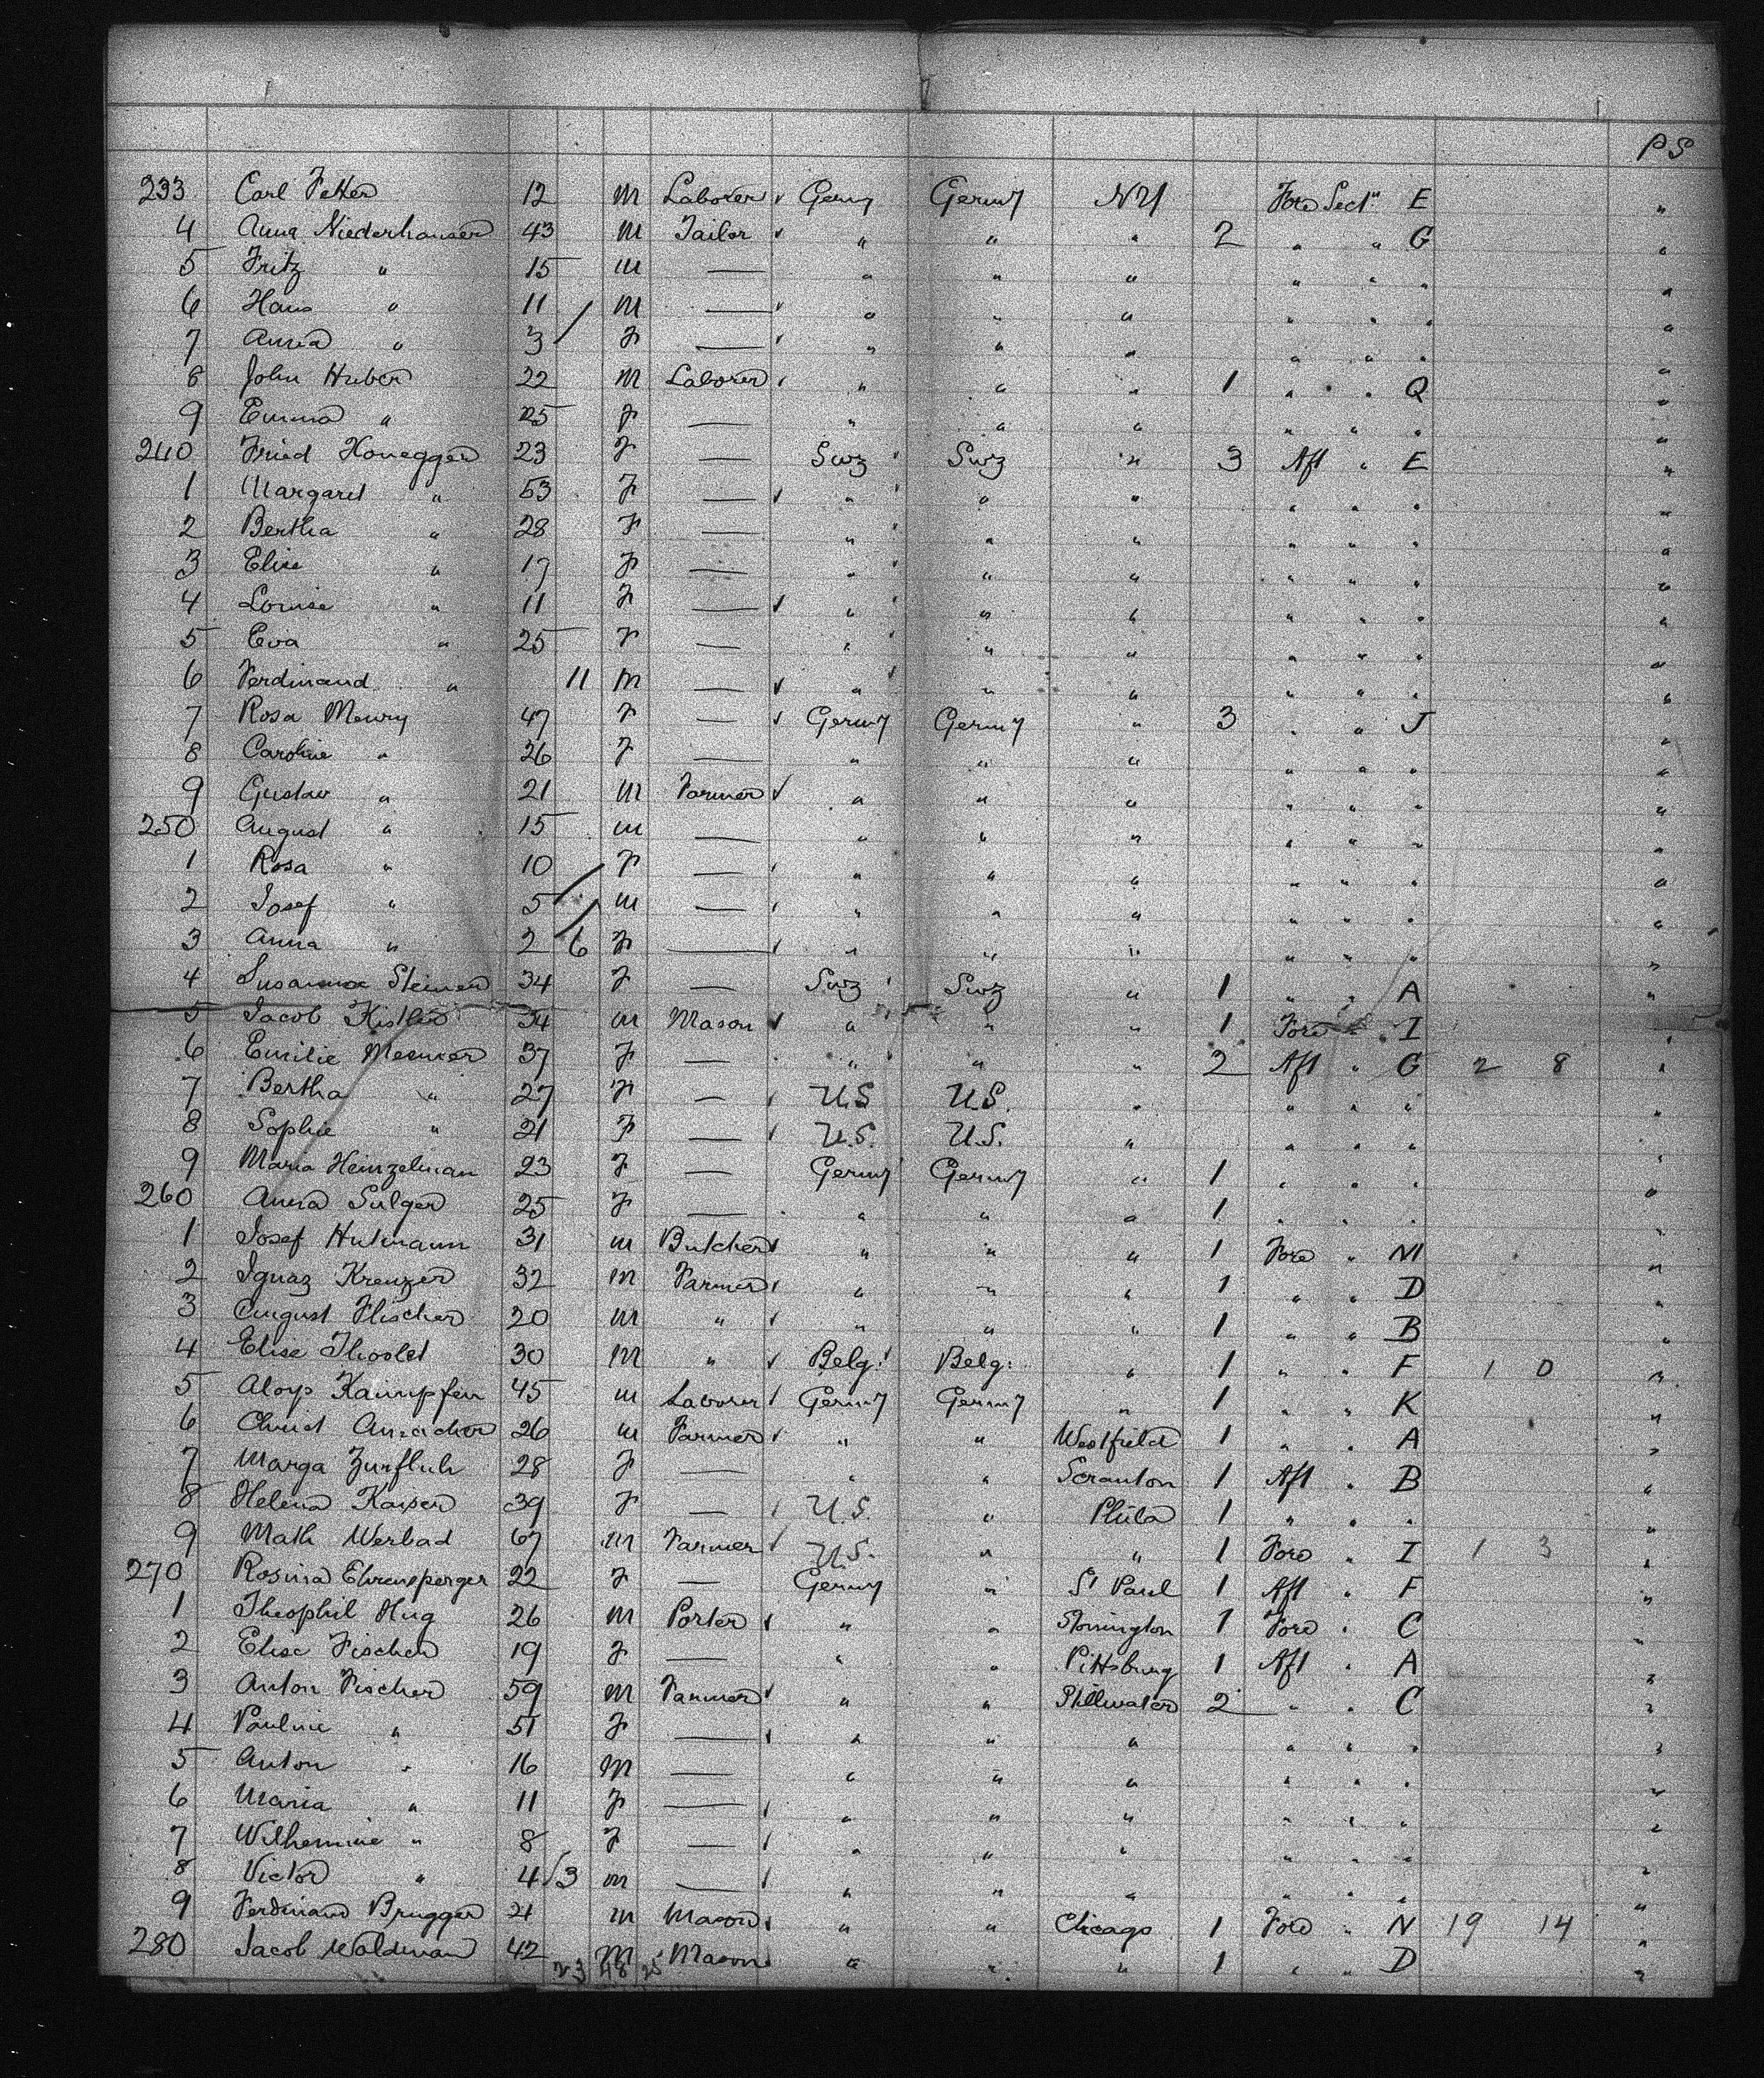 PS
233 Carl Fetter 12 M Laborer Germy Germy NY Fore Sect" E "
4 Anna Niederhauser 43 M Tailor " " " 2 " " G "
5 Fritz " 15 M — " " " " " " "
6 Hans " 11 M — " " " " " " "
7 Anna " 3 F — " " " " " " "
8 John Huber 22 M Laborer " " " 1 " " Q "
9 Emma " 25 F — " " " " " " "
240 Fried Honegger 23 F — Swz Swz " 3 Aft " E "
1 Margaret " 53 F — " " " " " " "
2 Bertha " 28 F — " " " " " " "
3 Elise " 17 F — " " " " " " "
4 Louise " 11 F — " " " " " " "
5 Eva " 25 F — " " " " " " "
6 Ferdinand " 11 M — " " " " " " "
7 Rosa Meury 47 F — Germy Germy " 3 " " J "
8 Caroline " 26 F — " " " " " " "
9 Gustav " 21 M Farmer " " " " " " "
250 August " 15 M — " " " " " " "
1 Rosa " 10 F — " " " " " " "
2 Josef " 5 M — " " " " " " "
3 Anna " 2 6 F — " " " " " " "
4 Susanna Steiner 34 F — Swz Swz " 1 " " A "
5 Jacob Kistler 34 M Mason " " " 1 Fore " I "
6 Emilie Mesmer 37 F — " " " 2 Aft " G 2 8 "
7 Bertha " 27 F — U.S U.S. " " " " "
8 Sophie " 21 F — U.S. U.S. " " " " "
9 Maria Heinzelman 23 F — Germy Germy " 1 " " " "
260 Anna Sulger 25 F — " " " 1 " " " "
1 Josef Hutmann 31 M Butcher " " " 1 Fore " M "
2 Ignaz Kreuzer 32 M Farmer " " " 1 " " D "
3 August Fischer 20 M " " " " 1 " " B "
4 Elise 30 M " Belg. Belg. " 1 " " F 1 0 "
5 Aloys Kampfen 45 M Laborer Germy Germy " 1 " " K "
6 26 M Farmer " " Westfield 1 " " A "
7 Marga Zurfluh 28 F — " " Scranton 1 Aft " B "
8 Helena Kaiser 39 F — U.S. " Phila 1 " " " "
9 Math Werbad 67 M Farmer U.S. " " 1 Fore " I 1 3 "
270 Rosina Ehrensperger 22 F — Germy " St Paul 1 Aft " F "
1 Theophil Hug 26 M Porter " " Stonington 1 Fore " C "
2 Elise Fischer 19 F — " " Pittsburg 1 Aft " A "
3 Anton Fischer 59 M Farmer " " Stillwater 2 " " C "
4 Pauline " 51 F — " " " " " " "
5 Anton " 16 M — " " " " " " "
6 Maria " 11 F — " " " " " " "
7 Wilhemine " 8 F — " " " " " " "
8 Victor " 4 3 M — " " " " " " "
9 Ferdinand Brugger 21 M Mason " " Chicago 1 Fore " N 19 14 "
280 Jacob Waldman 42 M Mason " " " 1 " " D "
23 48 25